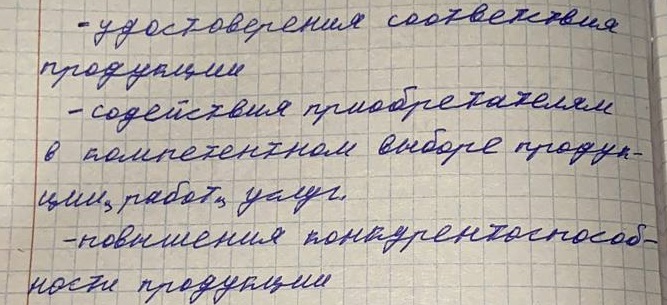 - удостоверения соответствия
продукции
- содействия приобретателям
в компетентном выборе продук-
ции, работ, услуг.
- повышения конкурентоспособ-
ности продукции